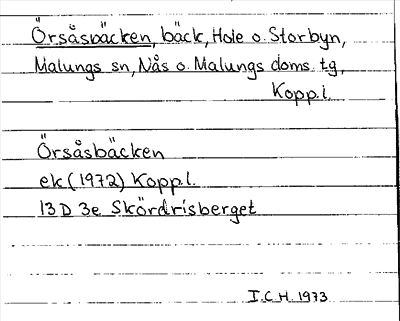 Örsåsbäcken, bäck, Hole o. Storbyn,
Malungs sn, Nås o. Malungs doms. tg,
Kopp.l.
Örsåsbäcken
ek (1972) Koppl.
13 D 3e Skördrisberget
I.C.H. 1973